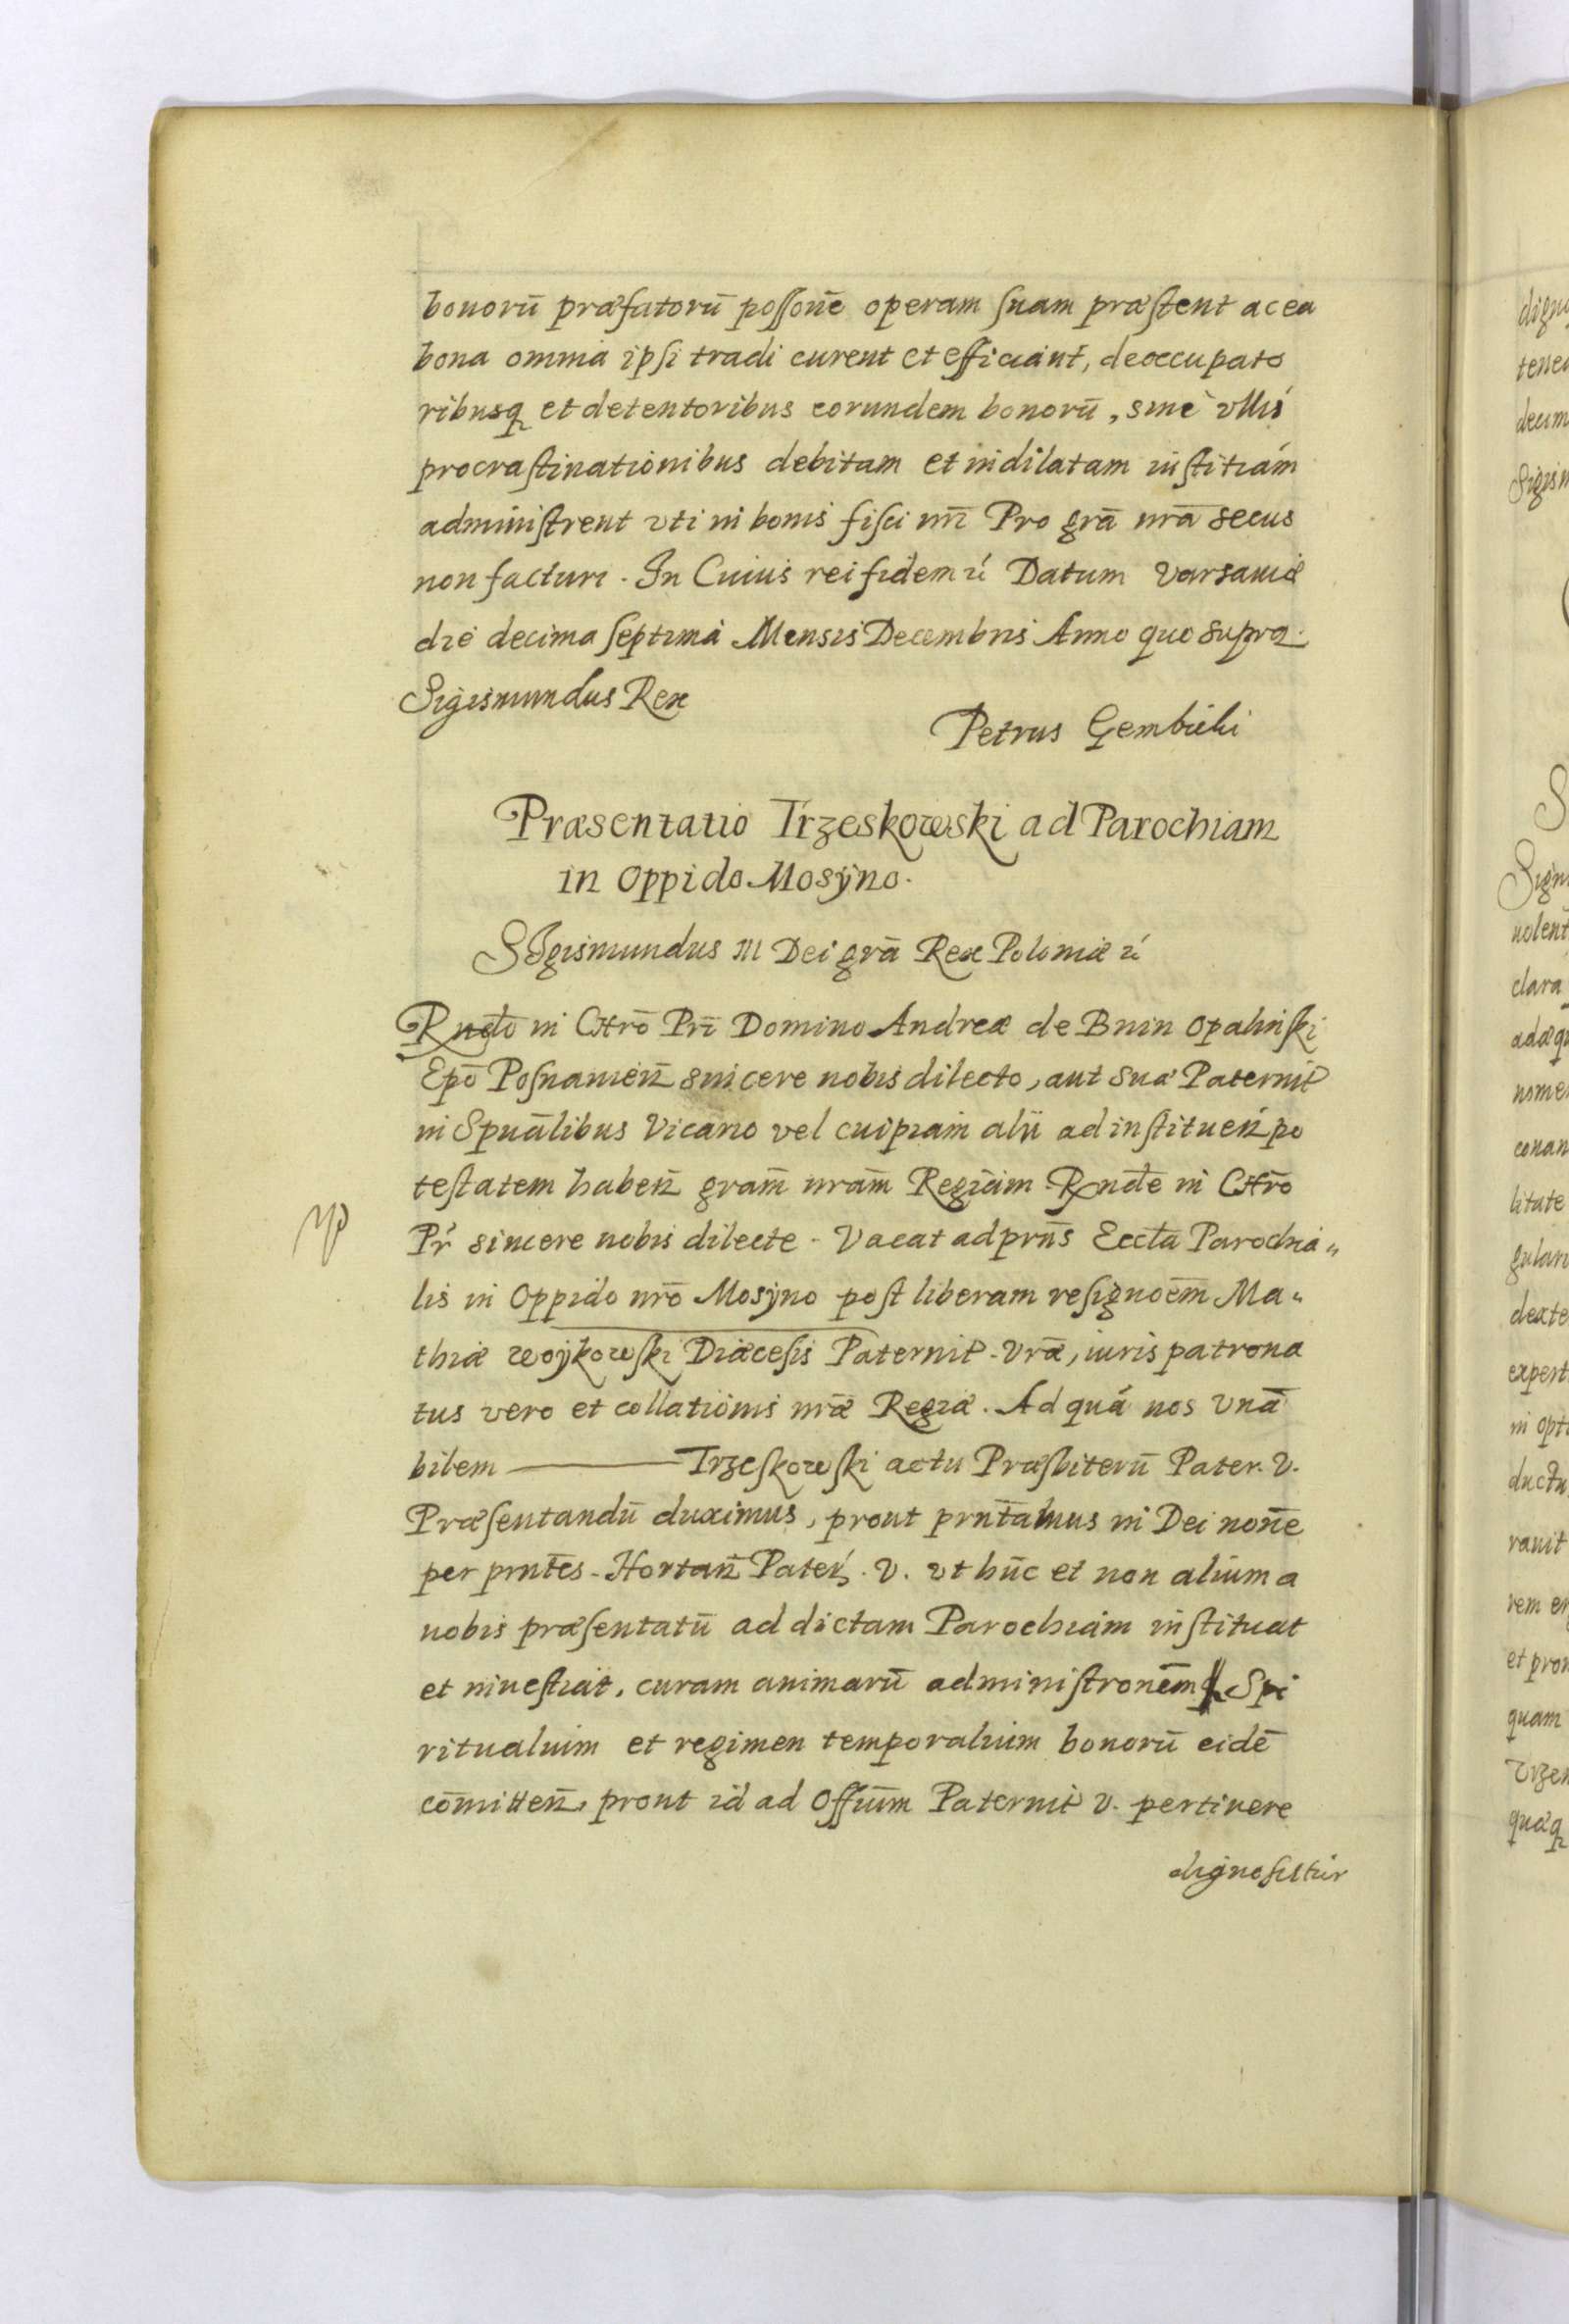 bonorū præfatorū poſſon̄e operam ſuam præſtent ac ea
bona omnia ipſi tradi curent et efficiant, deoccupato
ribusq et detentoribus eorundem bonorū, sine vllis
procraſtinationibus debitam et indilatam iuſtitiam
adminiſtrent vti in bonis fiſci nr̄i Pro grā nrā secus
non facturi. In Cuius rei fidem ꝛć Datum Varsauiæ
die decima ſeptima Mensis Decembris Anno quo supra.
Sigismundus Rex
Petrus Gembicki
Præsentatio Trzeskowski ad Parochiam
in Oppido Mosÿno.
SIgismundus III Dei grā Rex Poloniæ ꝛć
Rndo in Chrō Prī Domino Andreæ de Bnin Opalinſki
Epō Poſnanien̄ sincere nobis dilecto, aut suæ Paternit̄
in Spuālibus Vicario vel cuipiam alÿ ad inſtituen̄ po
teſtatem haben̄ gram̄ nram̄ Regiam. Rnde in Chrō
Pr̄ sincere nobis dilecte. Vacat ad prn̄s Eccta Parochia„
lis in Oppido nrō Mosÿno poſt liberam reſignoēm Ma„
thiæ Woÿkowſki Diæceſis Paternit̄. Vræ, iuris patrona
tus vero et collationis nræ Regiæ. Ad quá nos Vnā
bilem ——— Trzeſkowſki actu Præſbiterū Pater. V.
Præſentandū duximus, prout prnt̄amus in Dei non̄e
per prnt̄es. Hortan̄ Pater. V. vt hūc et non alium a
nobis præſentatū ad dictam Parochiam inſtituat
et inueſtiat, curam animarū adminiſtronēmq Spi
ritualium et regimen temporalium bonorū eidē
cōmitten̄, prout id ad Offium̄ Paternit̄ V. pertinere
dignoſcitur